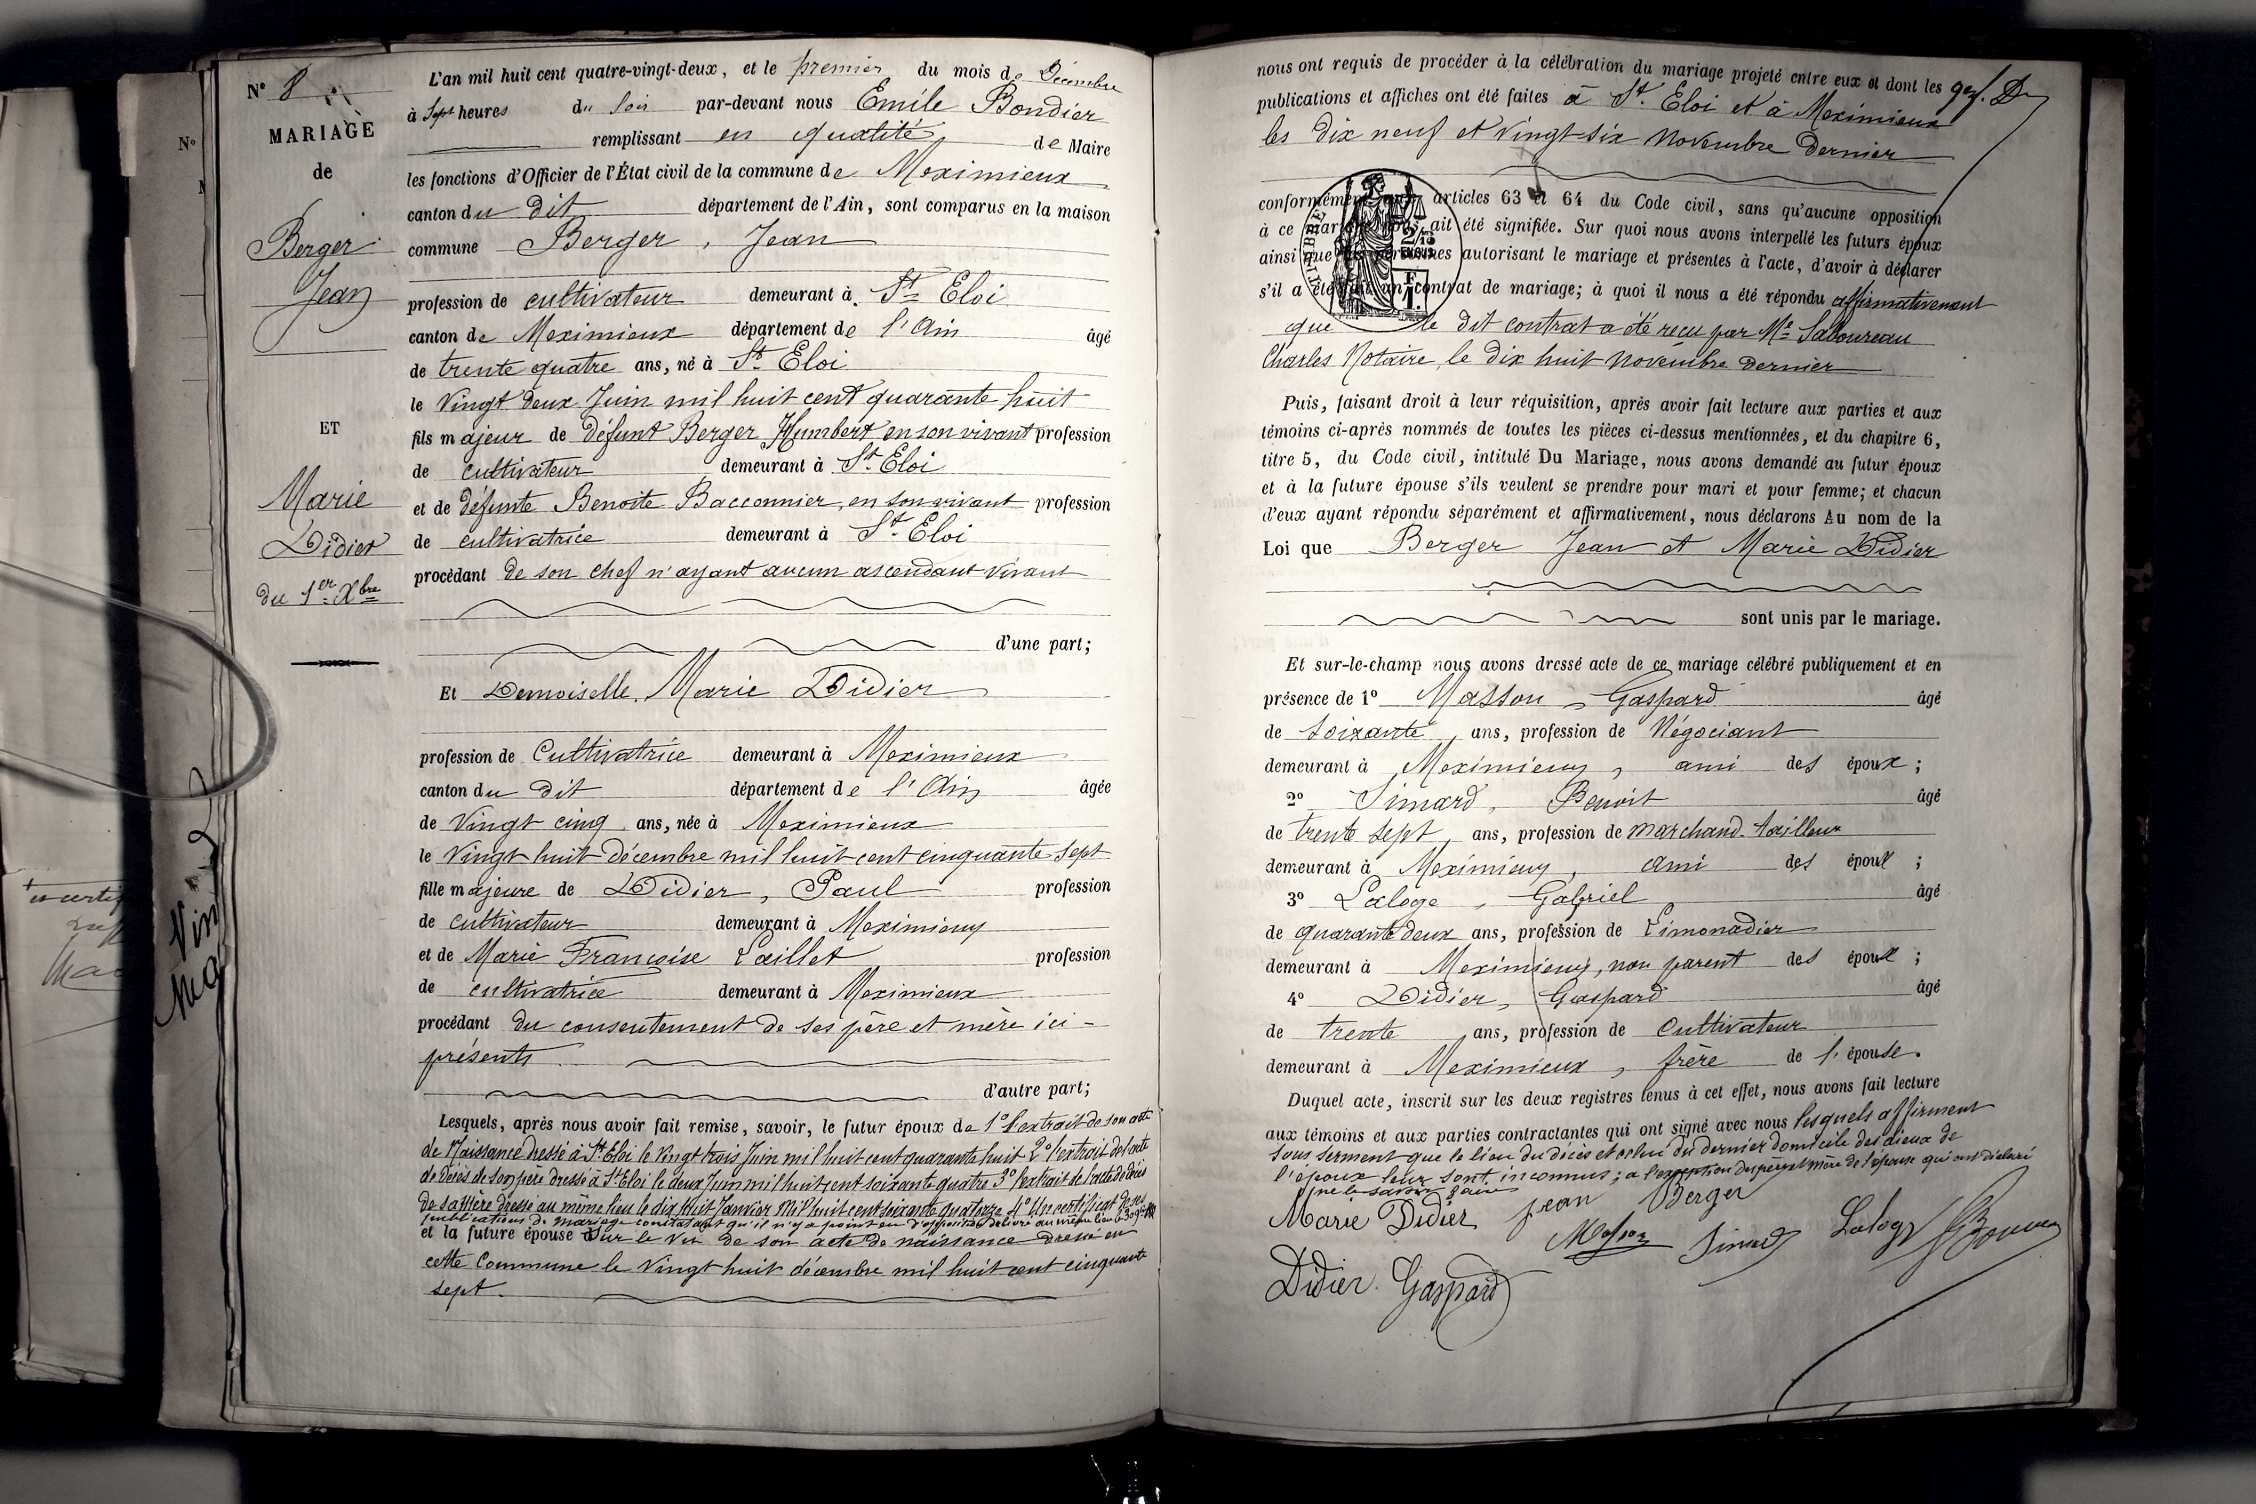 N° 8
MARIAGE
de
Berger
Jean
ET
Marie
Didier
du 1er Xbre
L'an mil huit cent quatre-vingt-deux, et le premier du mois de Décembre
à Sept heures du soir par-devant nous Emile Bondier
remplissant en qualité de Maire
les fonctions d'Officier de l'État civil de la commune de Meximieux
canton du dit département de l'Ain, sont comparus en la maison
commune Berger, Jean
profession de cultivateur demeurant à St Eloi
canton de Meximieux département de l'Ain âgé
de trente quatre ans, né à St Eloi
le Vingt deux Juin mil huit cent quarante huit
fils majeur de défunt Berger Humbert en son vivant profession
de cultivateur demeurant à St Eloi
et de défunte Benoite Bacconnier, en son vivant profession
de cultivatrice demeurant à St Eloi
procédant de son chef n'ayant aucun ascendant vivant
d'une part;
Et Demoiselle Marie Didier
profession de Cultivatrice demeurant à Meximieux
canton du dit département de l'Ain âgée
de Vingt cinq ans, née à Meximieux
le Vingt huit décembre mil huit cent cinquante sept
fille majeure de Didier, Paul profession
de cultivateur demeurant à Meximieux
et de Marie Françoise Laillet profession
de cultivatrice demeurant à Meximieux
procédant du consentement de ses père et mère ici-
présents
d'autre part;
Lesquels, après nous avoir fait remise, savoir, le futur époux de 1° l'extrait de son acte
de Naissance dressé à St Eloi le Vingt trois Juin mil huit cent quarante huit 2° l'extrait de l'acte
de décès de son père dressé à St Eloi le deux Juin mil huit cent soixante quatre 3° l'extrait de l'acte de décès
de sa Mère dressé au même lieu le dix huit Janvier Mil huit cent soixante quatorze 4° Un certificat de ses
publications de mariage constatant qu'il n'y a point eu d'opposition délivré au même lieu le 30 9bre
et la future épouse Sur le Vu de son acte de naissance dressé en
cette Commune le Vingt huit décembre mil huit cent cinquante
sept.
nous ont requis de procéder à la célébration du mariage projeté entre eux et dont les
publications et affiches ont été faites à St Eloi et à Meximieux
les dix neuf et Vingt-six Novembre dernier
conformément articles 63 et 64 du Code civil, sans qu'aucune opposition
à ce mariage ait été signifiée. Sur quoi nous avons interpellé les futurs époux
ainsi que les personnes autorisant le mariage et présentes à l'acte, d'avoir à déclarer
s'il a été fait un contrat de mariage; à quoi il nous a été répondu affirmativement
que le dit contrat a été reçu par Me Saboureau
Charles Notaire, le dix huit Novembre dernier
Puis, faisant droit à leur réquisition, après avoir fait lecture aux parties et aux
témoins ci-après nommés de toutes les pièces ci-dessus mentionnées, et du chapitre 6,
titre 5, du Code civil, intitulé Du Mariage, nous avons demandé au futur époux
et à la future épouse s'ils veulent se prendre pour mari et pour femme; et chacun
d'eux ayant répondu séparément et affirmativement, nous déclarons Au nom de la
Loi que Berger Jean et Marie Didier
sont unis par le mariage.
Et sur-le-champ nous avons dressé acte de ce mariage célébré publiquement et en
présence de 1° Masson, Gaspard âgé
de soixante ans, profession de Négociant
demeurant à Meximieux, ami des époux;
2° Simard, Benoit âgé
de trente sept, ans, profession de marchand-tailleur
demeurant à Meximieux, ami des époux;
3° Laloge, Gabriel âgé
de quarante deux ans, profession de Limonadier
demeurant à Meximieux, non parent des époux;
4° Didier, Gaspard âgé
de trente ans, profession de Cultivateur
demeurant à Meximieux, frère de l'épouse.
Duquel acte, inscrit sur les deux registres tenus à cet effet, nous avons fait lecture
aux témoins et aux parties contractantes qui ont signé avec nous lesquels affirment
sous serment que le lieu du décès et celui du dernier domicile des aieux de
l'époux leur sont inconnus; à l'exception des père et mère de l'épouse qui ont déclaré
ne le savoir faire
Marie Didier Jean Berger
Masson Simard Laloge
Didier Gaspard